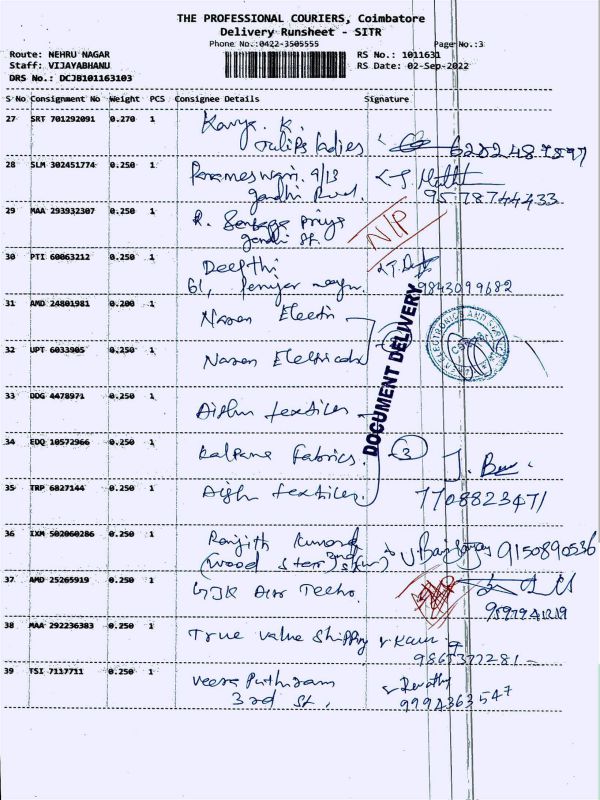 THE PROFESSIONAL COURIERS, Coimbatore
Delivery Runsheet - SITR
Phone No.:0422-3505555
Page No.:3
Route: NEHRU NAGAR
Staff: VIJAYABHANU
DRS No.: DCJB101163103
RS No.: 1011631
RS Date: 02-Sep-2022
S No Consignment No Weight PCS Consignee Details Signature
27 SRT 701292091 0.270 1 Kavya. K.
Tulips ladies 6202487597
28 SLM 302451774 0.250 1 Parameswari. 9/13
gandhi Road. 9578744433
29 MAA 293932307 0.250 1 R. priya
gandhi St. N/P
30 PTI 60863212 0.250 1 Deepthi
61, 9843099682
31 AMD 24801981 0.200 1 Naren Electri
32 UPT 6033905 0.250 1 Naren Electricals
DOCUMENT DELIVERY
33 DDG 4478971 0.250 1 Aishu textiles
34 EDQ 10572966 0.250 1 Kalpana Fabrics. 3
35 TRP 6827144 0.250 1 Aish textiles. 7708823471
36 IXM 502060286 0.250 1 Ranjith Kumar
(Wood 9150890536
37 AMD 25265919 0.250 1 GJK Air Techo.
9597941219
38 MAA 292236383 0.250 1 True value Shipping
9865372281
39 TSI 7117711 0.250 1 Veera Puthiram Revathy
3rd St. 9994363547